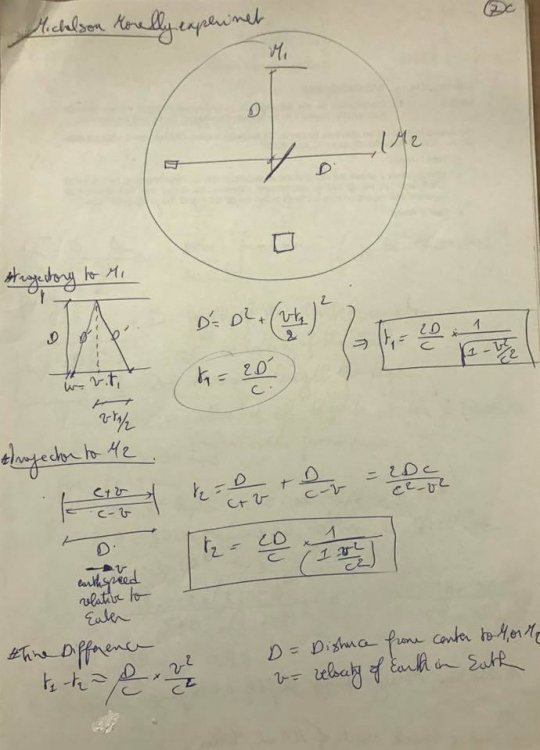 ②c
Michelson Morelly experimet
M₁
D
M2
D
#trajectory to M₁
D D' D'
w= v.t₁
vt₁/2
D' = D² + (vt₁/2)²
t₁ = 2D'/c
⇒ t₁ = 2D/c × 1/√(1 - v²/c²)
#Trajector to M2
c+v
c-v
D
v
earth speed
relative to
Eather
t₂ = D/(c+v) + D/(c-v) = 2Dc/(c²-v²)
t₂ = 2D/c × 1/(1 v²/c²)
#Time Difference
t₁ - t₂ = D/c × v²/c²
D = Distance from center to M₁ or M₂
v = velocity of Earth in Eath